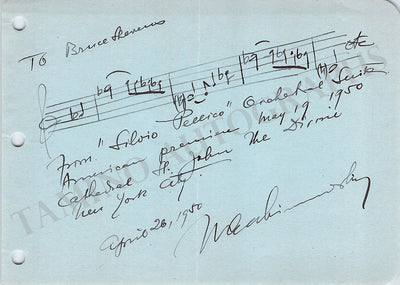 To Bruce
etc
From "Silvio Pellico" Orchestral Suite
American premiere May 19 1950
Cathedral St. John The Divine
New York City.
April 26, 1950
TAMINO AUTOGRAPHS